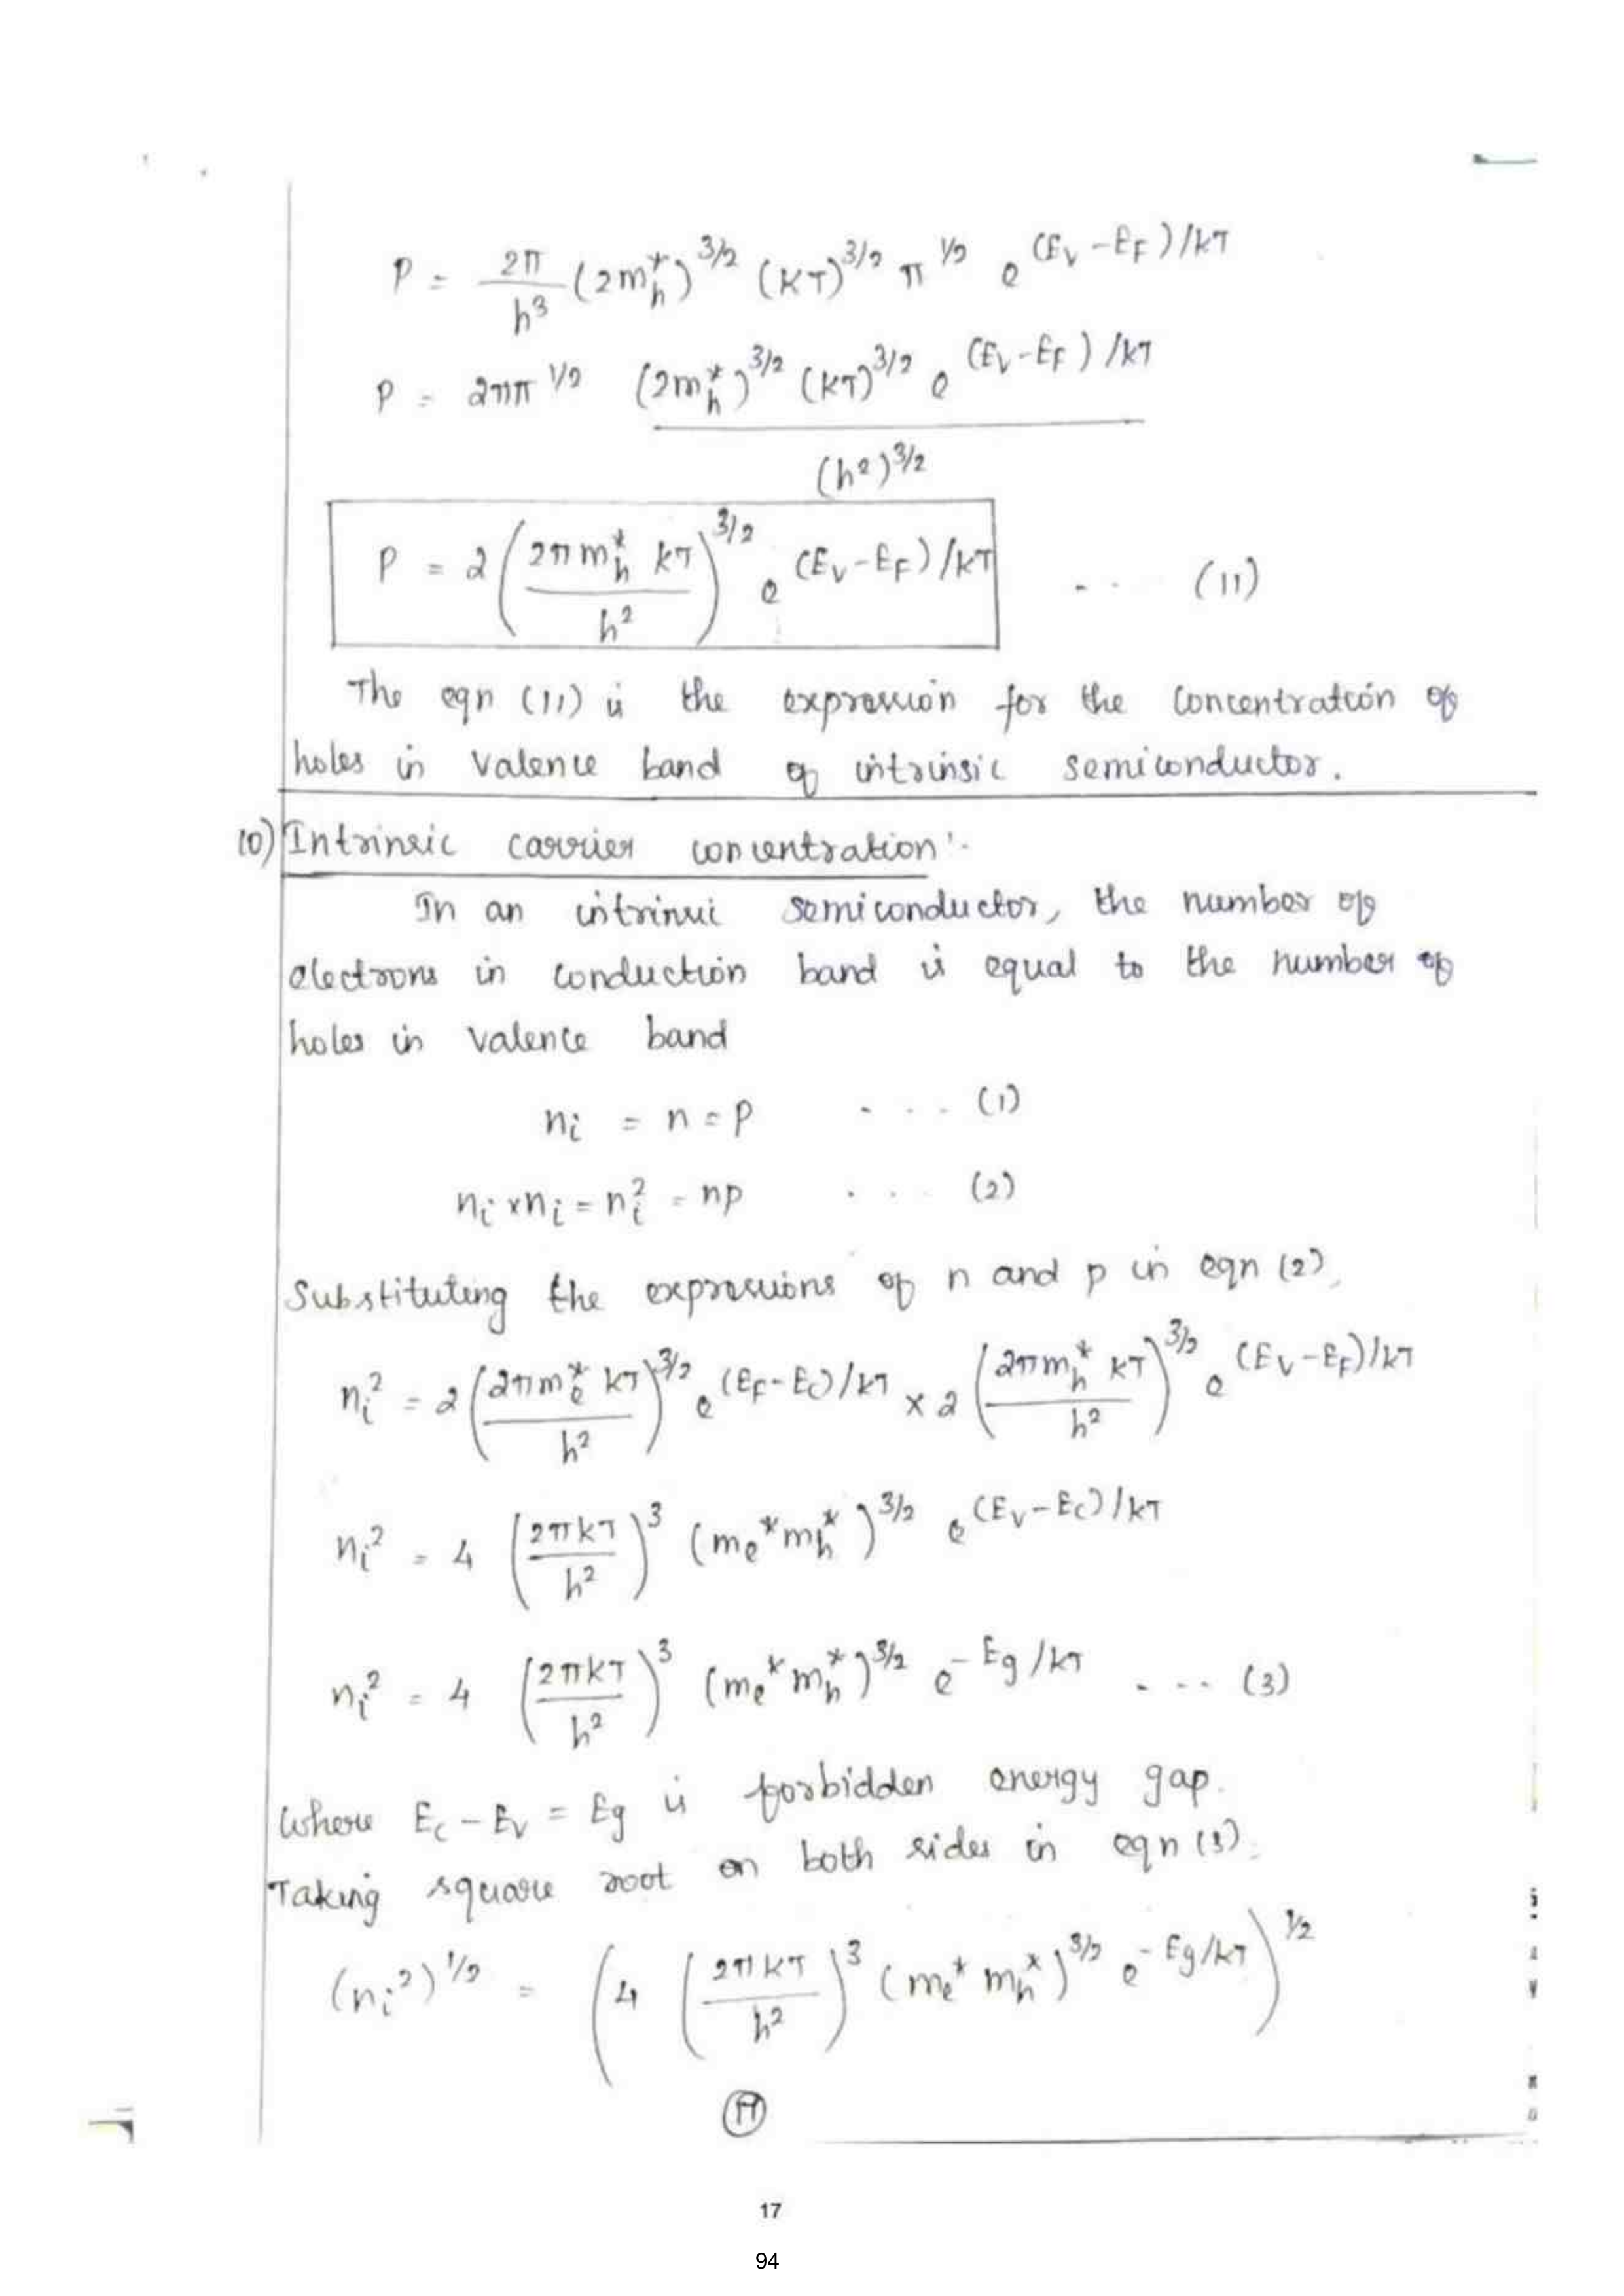 P = 2π/h³ (2m*h)^3/2 (KT)^3/2 π^1/2 e^(Ev-EF)/kT
P = 2ππ^1/2 (2m*h)^3/2 (kT)^3/2 e^(Ev-EF)/kT
(h²)^3/2
P = 2 (2πm*h kT / h²)^3/2 e^(Ev-EF)/kT .. (11)
The eqn (11) is the expression for the concentration of
holes in valence band of intrinsic semiconductor.
10) Intrinsic carrier concentration:-
In an intrinsic semiconductor, the number of
electrons in conduction band is equal to the number of
holes in valence band
ni = n = p .... (1)
ni x ni = ni² = np ... (2)
Substituting the expressions of n and p in eqn (2),
ni² = 2 (2πm*e kT / h²)^3/2 e^(EF-Ec)/kT x 2 (2πm*h kT / h²)^3/2 e^(Ev-EF)/kT
ni² = 4 (2πkT / h²)³ (me* mh*)^3/2 e^(Ev-Ec)/kT
ni² = 4 (2πkT / h²)³ (me* mh*)^3/2 e^-Eg/kT .... (3)
Where Ec - Ev = Eg is forbidden energy gap.
Taking square root on both sides in eqn (3).
(ni²)^1/2 = (4 (2πkT / h²)³ (me* mh*)^3/2 e^-Eg/kT)^1/2
17
17
94